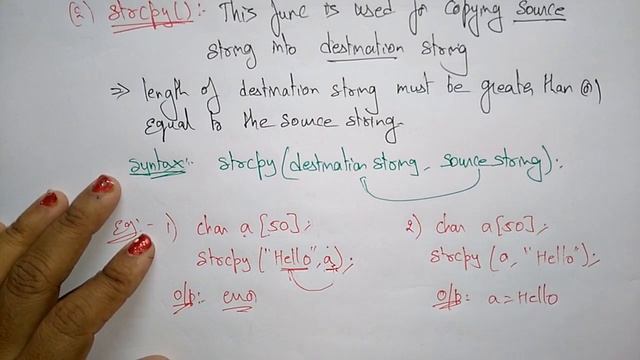 (2) strcpy() :- This func is used for copying source
string into destination string
⇒ length of destination string must be greater than (or)
equal to the source string.
Syntax:- strcpy(destination string, source string);
Eg:- 1) char a[50];
strcpy("Hello", a);
o/p: error
2) char a[50];
strcpy(a, "Hello");
o/p: a = Hello